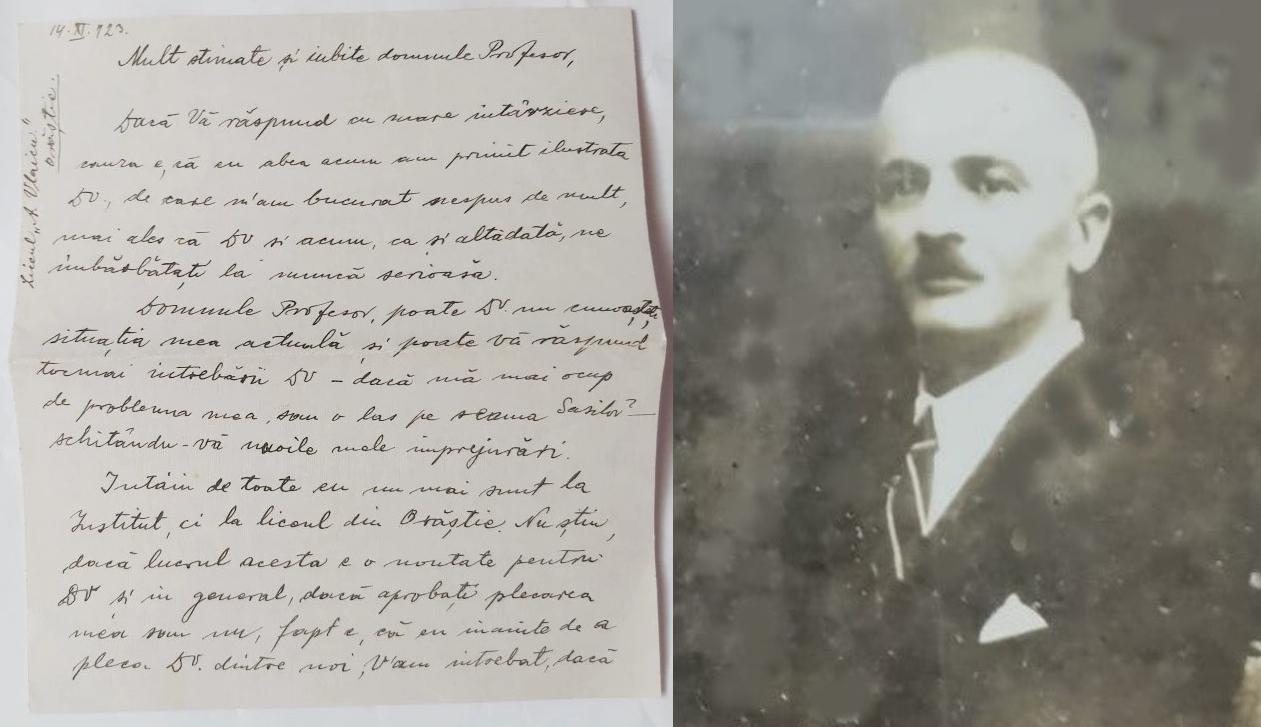 14.XI.923.
Liceul „A. Vlaicu"
Orăștie.
Mult stimate și iubite domnule Profesor,
Dacă Vă răspund cu mare întârziere,
cauza e, că eu abea acum am primit ilustrata
DV., de care m'am bucurat nespus de mult,
mai ales că DV și acum, ca și altădată, ne
îmbărbătați la muncă serioasă.
Domnule Profesor, poate DV. nu cunoașteți
situația mea actuală și poate vă răspund
tocmai întrebării DV – dacă mă mai ocup
de problema mea, sau o las pe seama Sasilor? –
schitându-vă noile mele împrejurări.
Întâiu de toate eu nu mai sunt la
Institut, ci la liceul din Orăștie. Nu știu,
dacă lucrul acesta e o noutate pentru
DV și in general, dacă aprobați plecarea
mea sau nu, fapt e, că eu inainte de a
pleca DV. dintre noi, V'am intrebat, dacă